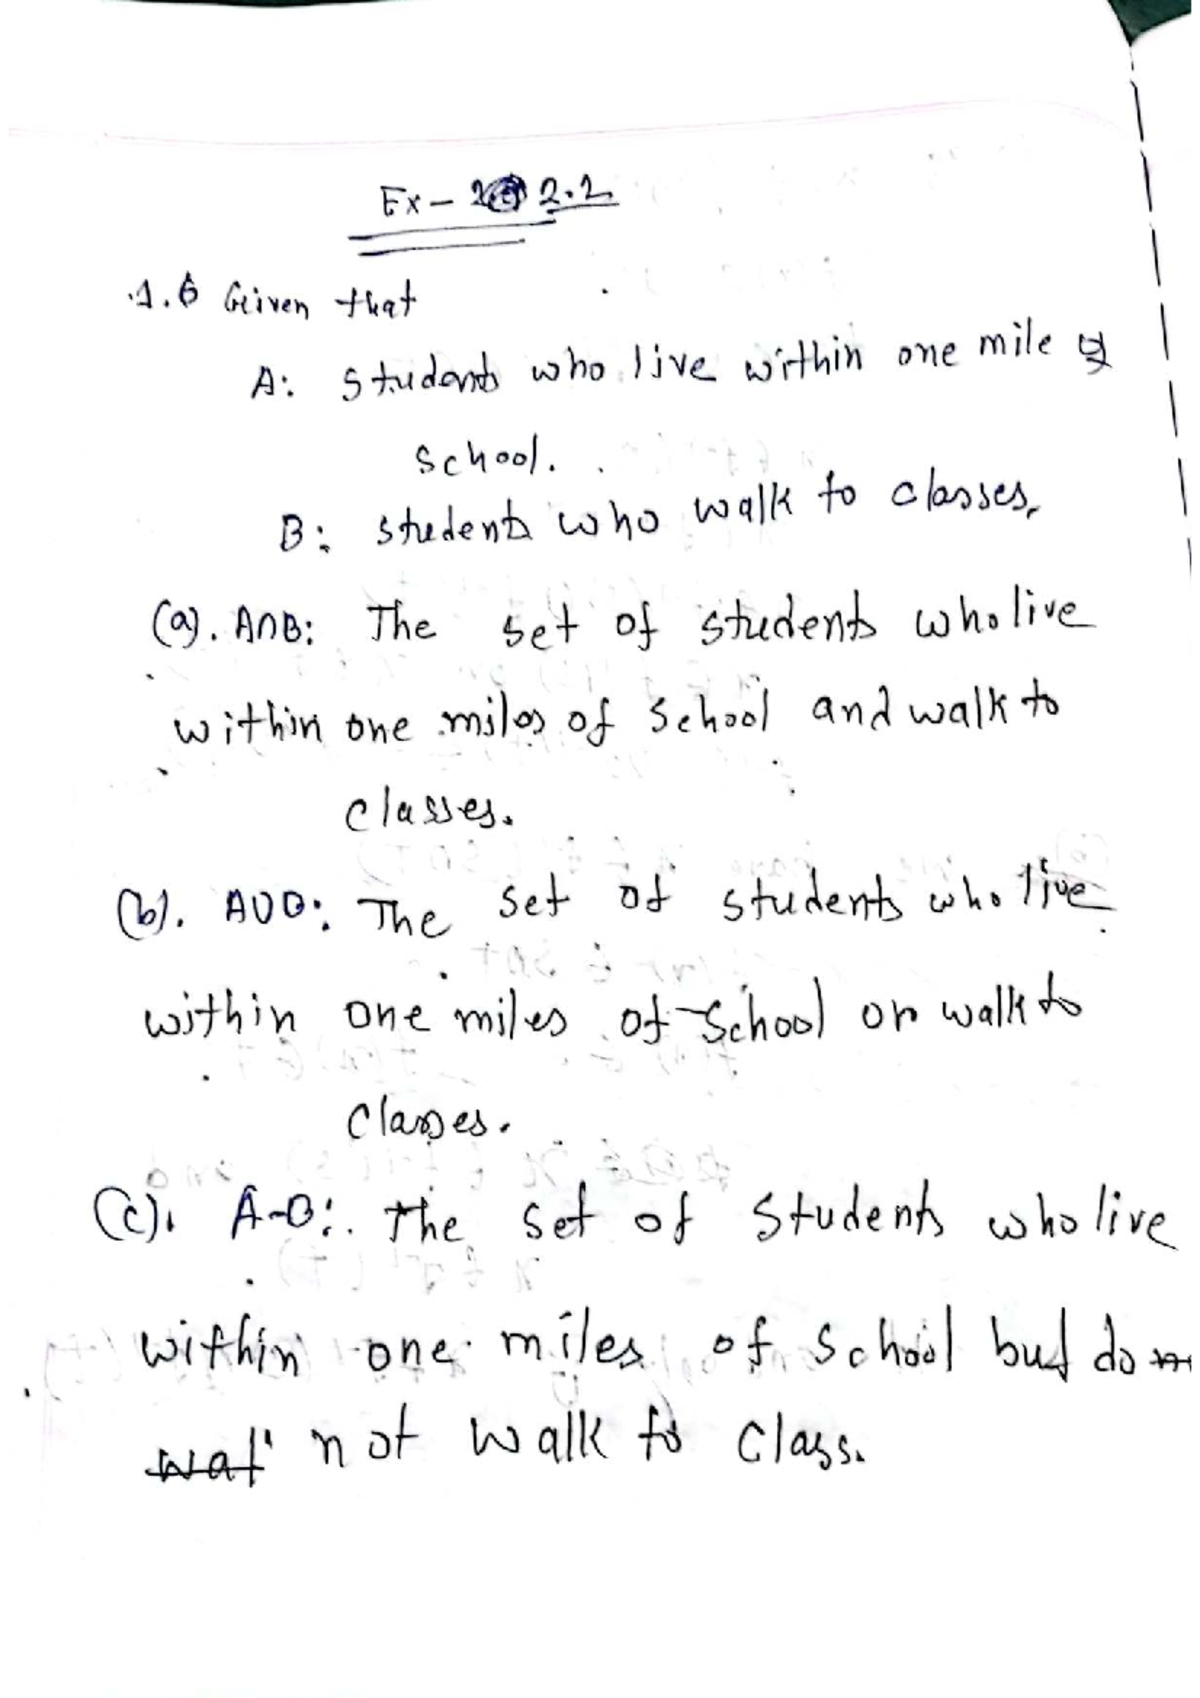 Ex- 2.2
1.6 Given that
A: students who live within one mile of
school.
B: students who walk to classes.
(a). A∩B: The set of students who live
within one miles of school and walk to
classes.
(b). A∪B: The set of students who live
within one miles of school or walk to
classes.
(c). A-B: The set of students who live
within one miles of school but do
not walk to class.